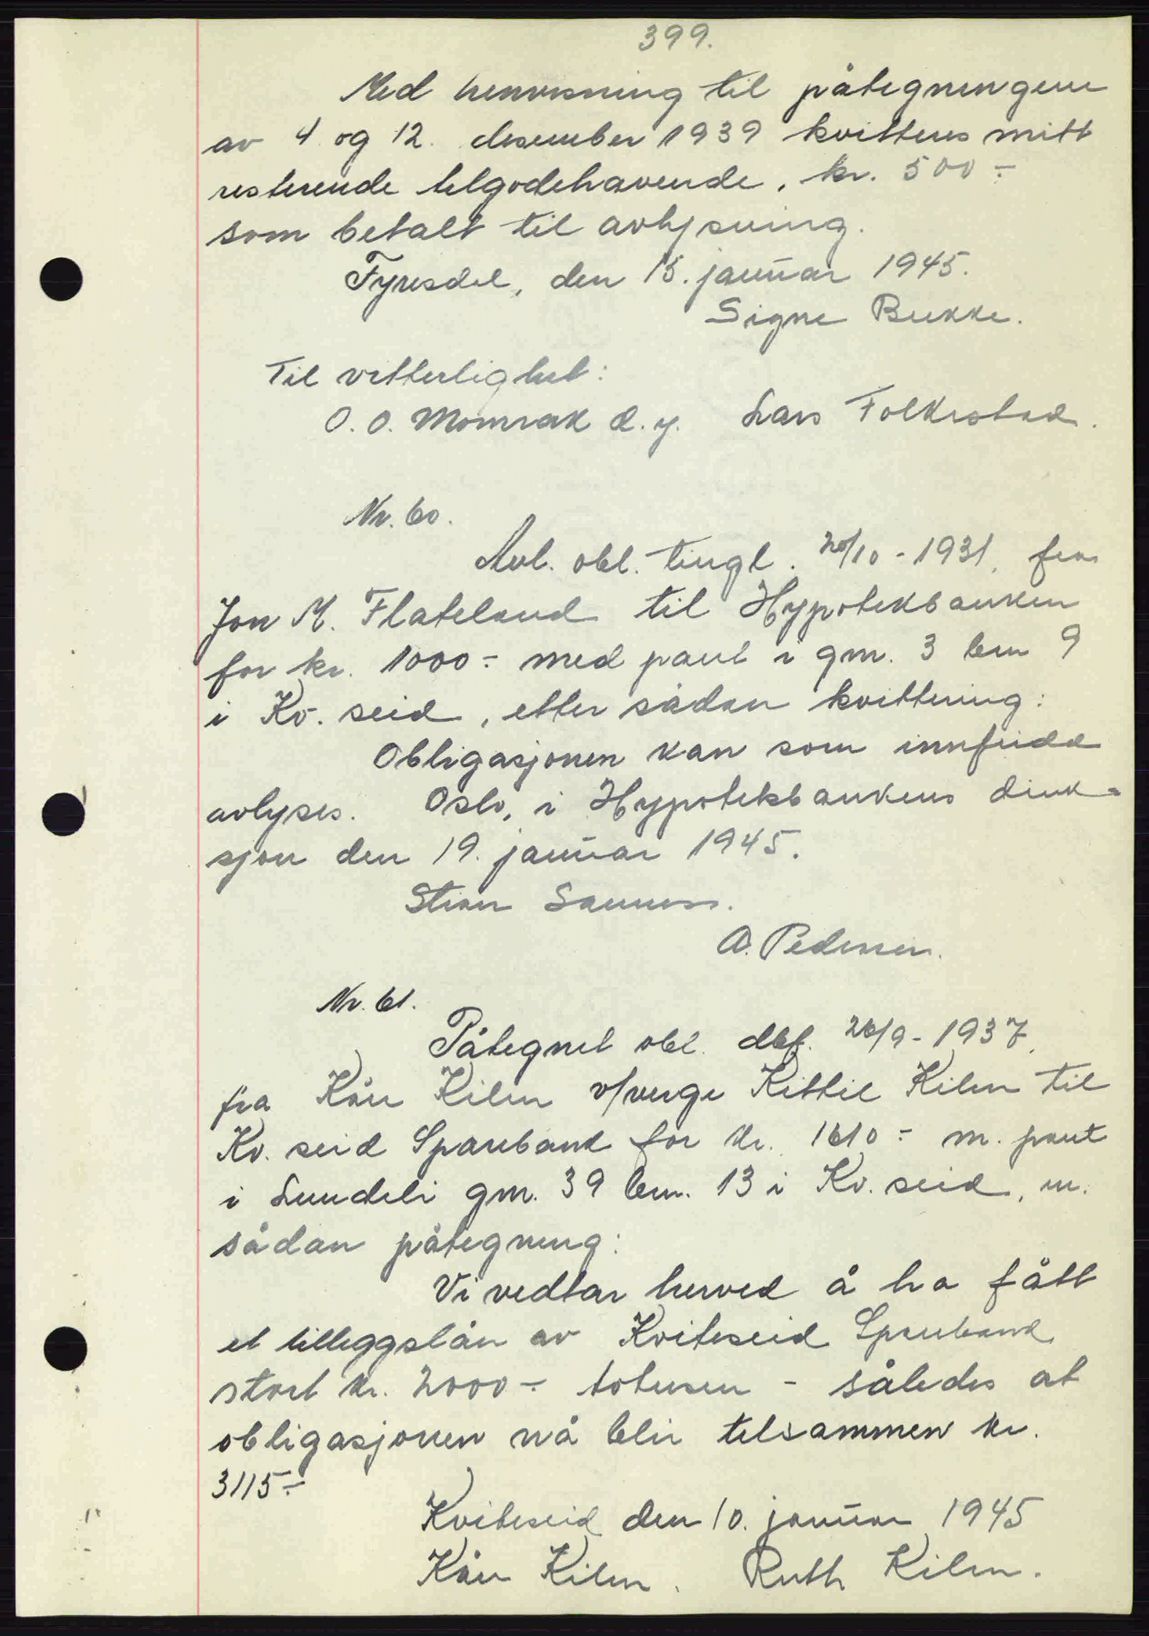 399.
Med henvisning til påtegningene
av 4 og 12. desember 1939 kvitteres mitt
resterende tilgodehavende, kr. 500 ÷
som betalt til avlysning.
Fyresdal, den 15. januar 1945.
Signe Bukke.
Til vitterlighet:
O. O. Momrak d. y. Lars Folkestad.
Nr. 60.
Avl. obl. tingl. 20/10 - 1931, fra
Jon M. Flateland til Hypotekbanken
for kr. 1000 ÷ med pant i gnr. 3 bnr 9
i Kv. seid, etter sådan kvittering:
Obligasjonen kan som innfridd
avlyses. Oslo, i Hypotekbankens direk-
sjon den 19. januar 1945.
Stian Sannes.
A. Pedersen.
Nr. 61.
Påtegnet obl. dbf. 26/9 - 1937,
fra Kåre Kilen v/verge Kittil Kilen til
Kv. seid Sparebank for kr. 1610 ÷ m. pant
i Lundeli gnr. 39 bnr. 13 i Kv. seid, m.
sådan påtegning:
Vi vedtar herved å ha fått
et tilleggslån av Kviteseid Sparebank
stort kr. 2000 ÷ totusen - således at
obligasjonen nå blir tilsammen kr.
3115 ÷
Kviteseid den 10. januar 1945
Kåre Kilen. Ruth Kilen.